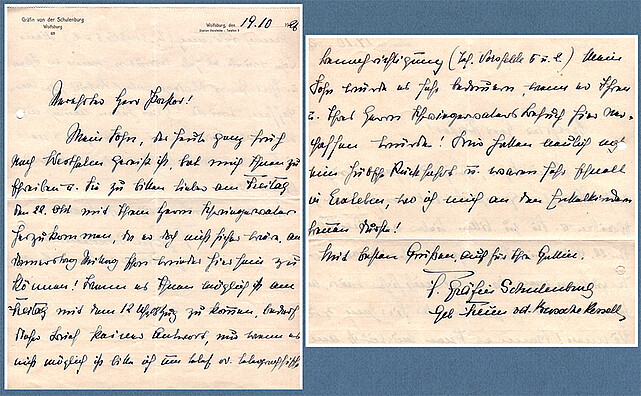 Gräfin von der Schulenburg
Wolfsburg
Wolfsburg, den 19.10 1926
Verehrter Herr Pastor!
Mein Sohn, der heute ganz früh
nach Westfalen gereist ist, bat mich Ihnen zu
schreiben u. Sie zu bitten lieber am Freitag
den 22. Okt mit Ihrem Herrn Schwiegervater
herzukommen, da er doch nicht sicher wäre, am
Donnerstag Mittag schon wieder hier sein zu
können! Wenn es Ihnen möglich ist am
Freitag mit dem 12 Uhrzug zu kommen, bedarf
dieser Brief keiner Antwort, nur wenn es
nicht möglich ist bitte ich um telef. od. telegraphische
Benachrichtigung (Tel. Vorsfelde 5 u. 2) Mein
Sohn würde es sehr bedauern wenn er Ihren
u. Ihres Herrn Schwiegervaters Besuch hier
würde! Wir hatten neulich noch
eine hübsche Rückfahrt u. waren sehr schnell
in wo ich mich an den Enkelkindern
freuen durfte!
Mit besten Grüßen, auch für Ihre Gattin.
Gräfin Schulenburg
geb.